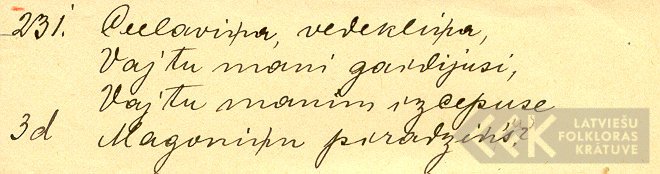 231. Cielaviņa, vedekliņa,
Vaj tu mani gaidijusi,
Vaj tu manim izcepuse
3d Magoniņu piradziņš?
LATVIEŠU
FOLKLORAS
KRĀTUVE